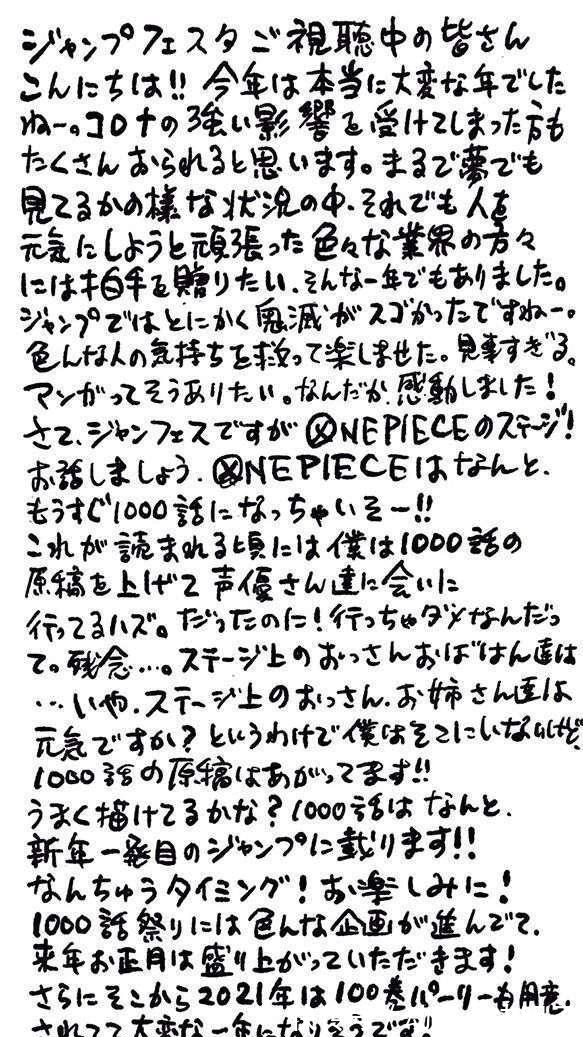 ジャンプフェスタご視聴中の皆さん
こんにちは!! 今年は本当に大変な年でした
ねー。コロナの強い影響を受けてしまった方も
たくさんおられると思います。まるで夢でも
見てるかの様な状況の中、それでも人を
元気にしようと頑張った色々な業界の方々
には拍手を贈りたい、そんな一年でもありました。
ジャンプではとにかく鬼滅がスゴかったですねー。
色んな人の気持ちを救って楽しませた。見事すぎる。
マンガってそうありたい。なんだか感動しました!
さて、ジャンフェスですがONE PIECEのステージ!
お話しましょう、ONE PIECEはなんと、
もうすぐ1000話になっちゃいそー!!
これが読まれる頃には僕は1000話の
原稿を上げて声優さん達に会いに
行ってるハズ。だったのに!行っちゃダメなんだっ
て。残念…。ステージ上のおっさんおばはん達は
…いや、ステージ上のおっさん、お姉さん達は
元気ですか?というわけで僕はそこにいないけど、
1000話の原稿はあがってます!!
うまく描けてるかな?1000話はなんと、
新年一発目のジャンプに載ります!!
なんちゅうタイミング!お楽しみに!
1000話祭りには色んな企画が進んでて、
来年お正月は盛り上がっていただきます!
さらにそこから2021年は100巻パーリーも用意
されてて大変な一年になりそうです!!